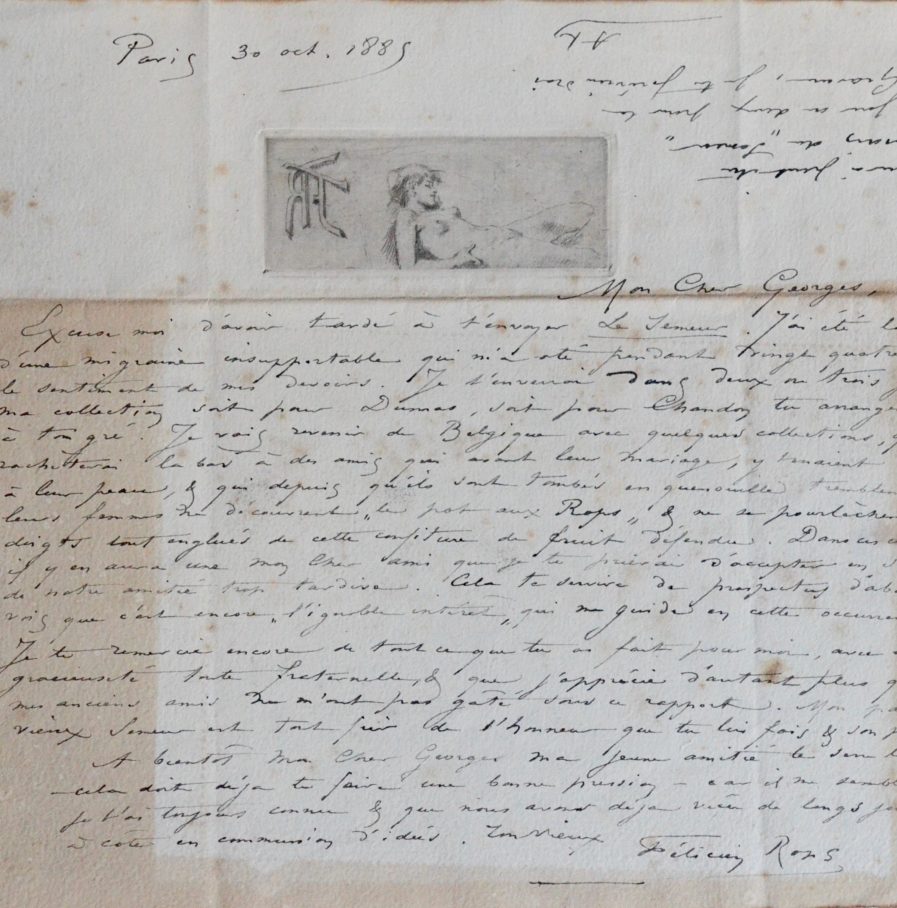 Paris 30 oct. 1889
Mon Cher Georges,
Excuse moi d'avoir tardé à t'envoyer Le Semeur. J'ai été
d'une migraine insupportable qui m'a oté pendant quatre
le sentiment de mes devoirs. Je t'enverrai dans deux ou trois
ma collection soit pour Dumas, soit pour Chandon, tu
à ton gré. Je vais revenir de Belgique avec quelques collections,
là bas à des amis qui avant leur mariage, y tenaient
à leur peau, & qui depuis qu'ils sont tombés en quenouille
leurs femmes ne découvrent „le pot aux Rops„ & ne se pourlèchent
doigts tout englués de cette confiture de fruit défendu. Dans
il y en aura une mon cher ami que je te prierai d'accepter en
de notre amitié trop tardive. Cela te servira de prospectus
vois que c'est encore „l'ignoble intérêt„ qui me guide en cette
Je te remercie encore de tout ce que tu as fait pour moi, avec
gracieuseté toute fraternelle, & que j'apprécie d'autant plus
mes anciens amis ne m'ont pas gâté sous ce rapport. Mon
vieux Semeur est tout fier de l'honneur que tu lui fais & son
A bientôt mon Cher Georges ma jeune amitié te serre
– cela doit déjà te faire une bonne pression – car il me semble
je t'ai toujours connu & que nous avons déjà vécu de longs
à côté en communion d'idées. Ton vieux
Félicien Rops